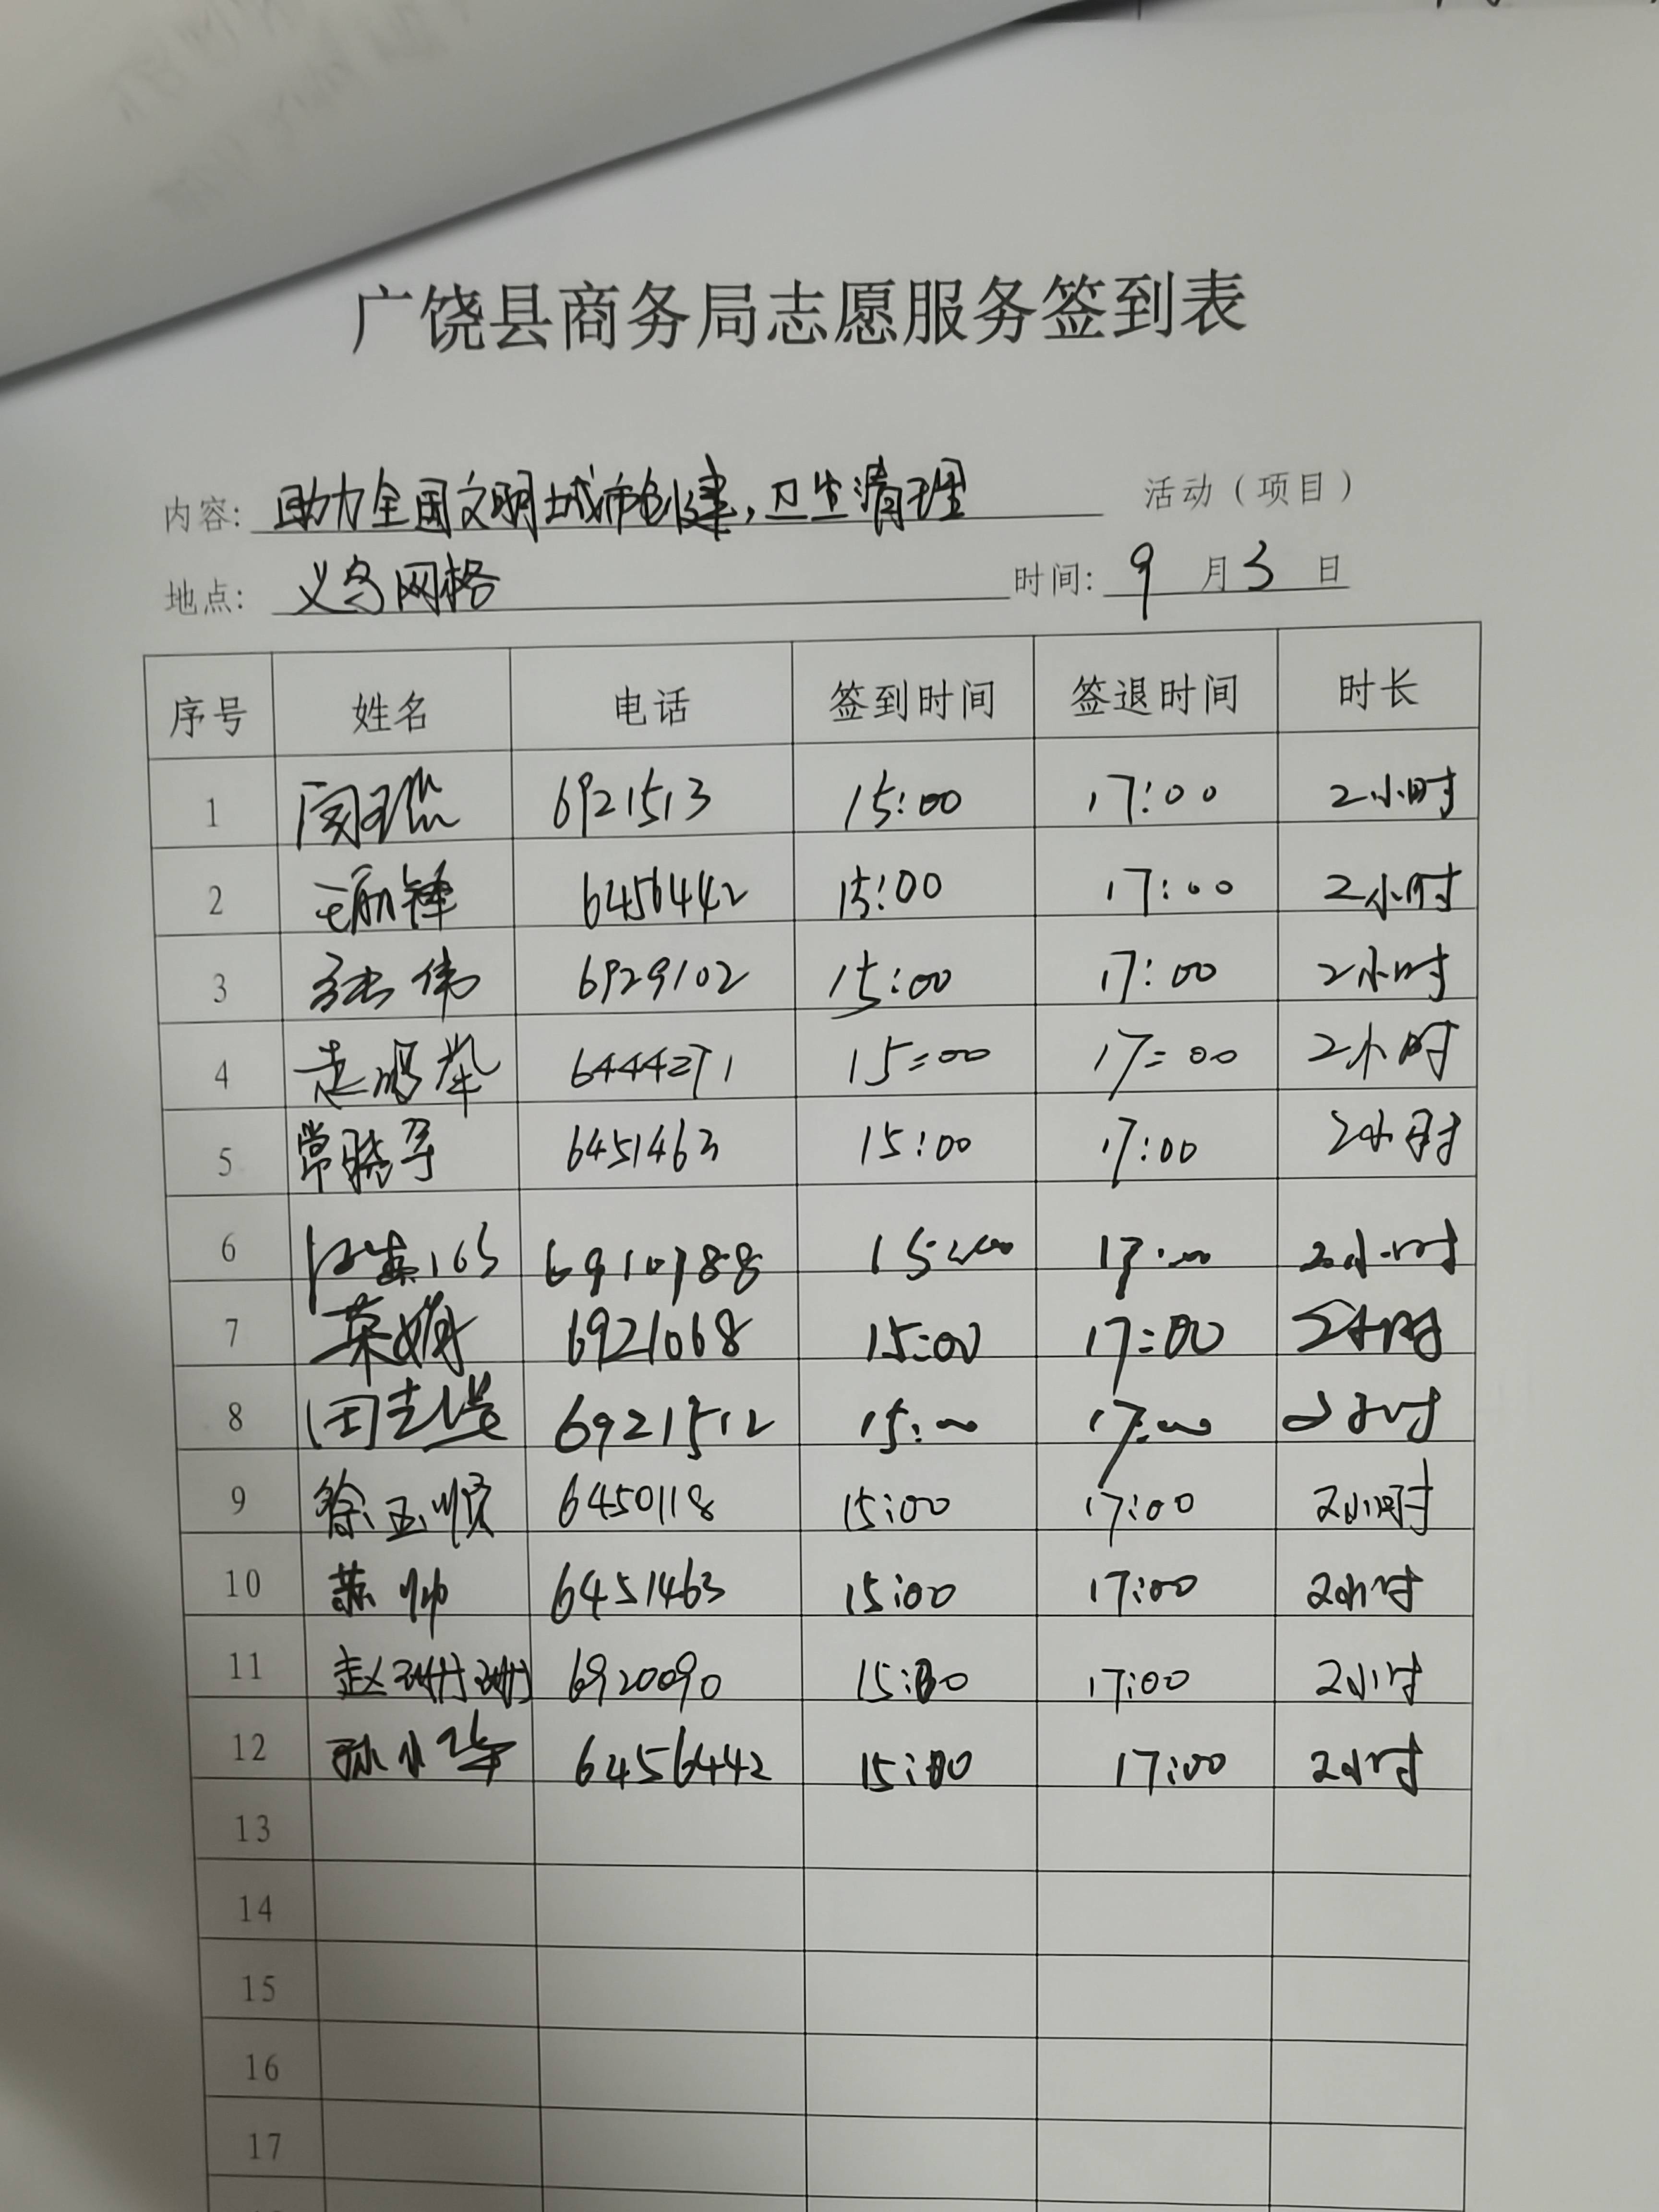 广饶县商务局志愿服务签到表
内容: 助力全国文明城市创建,卫生清理 活动(项目)
地点: 义乌网格 时间: 9 月 3 日
序号 姓名 电话 签到时间 签退时间 时长
1 6921513 15:00 17:00 2小时
2 6456442 15:00 17:00 2小时
3 张伟 6929102 15:00 17:00 2小时
4 6444271 15:00 17:00 2小时
5 常晓军 6451463 15:00 17:00 2小时
6 6910788 15:00 17:00 2小时
7 6921068 15:00 17:00 2小时
8 6921512 15:00 17:00 2小时
9 徐玉顺 6450118 15:00 17:00 2小时
10 苏帅 6451463 15:00 17:00 2小时
11 赵珊珊 6920090 15:00 17:00 2小时
12 6456442 15:00 17:00 2小时
13
14
15
16
17